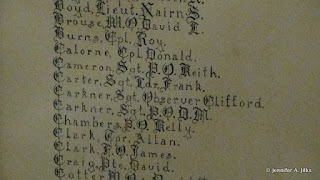 Boyd, Lieut. Nairn S.
Brouse, W.O. David L.
Burns, Cpl. Roy.
Calorne, Cpl. Donald.
Cameron, Sgt. P.O. Keith.
Carter, Sgt. Ldr. Frank.
Carkner, Sgt. Observer Clifford.
Carkner, Sgt. P.O. D.M.
Chambers, P.O. Kelly.
Clark, Tpr. Allan.
Clark, F.O. James.
Craig, Pte. David.
W.O. David
© Jennifer A. Jilks